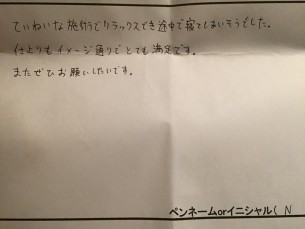 ていねいな施術でリラックスでき途中で寝てしまいそうでした。
仕上りもイメージ通りでとても満足です。
またぜひお願いしたいです。
ペンネームorイニシャル( N